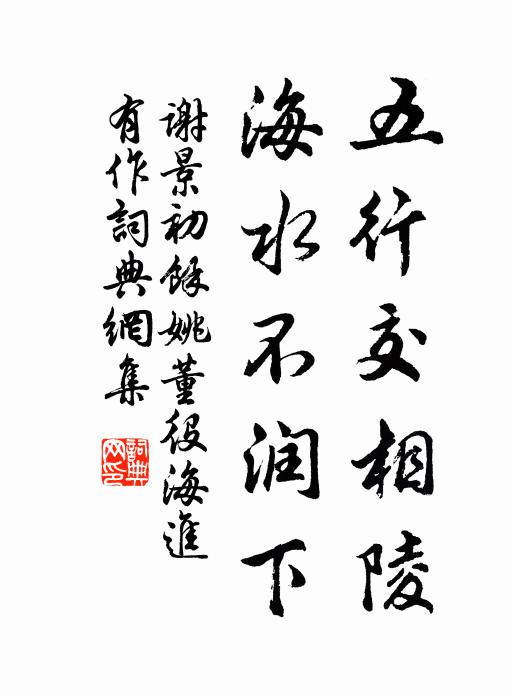 五行交相陵
海水不润下
謝景初餘姚董役海進
有作詞典網集
詞典
网印